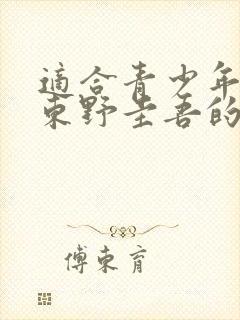 適合青少年
東野圭吾的
傅東育